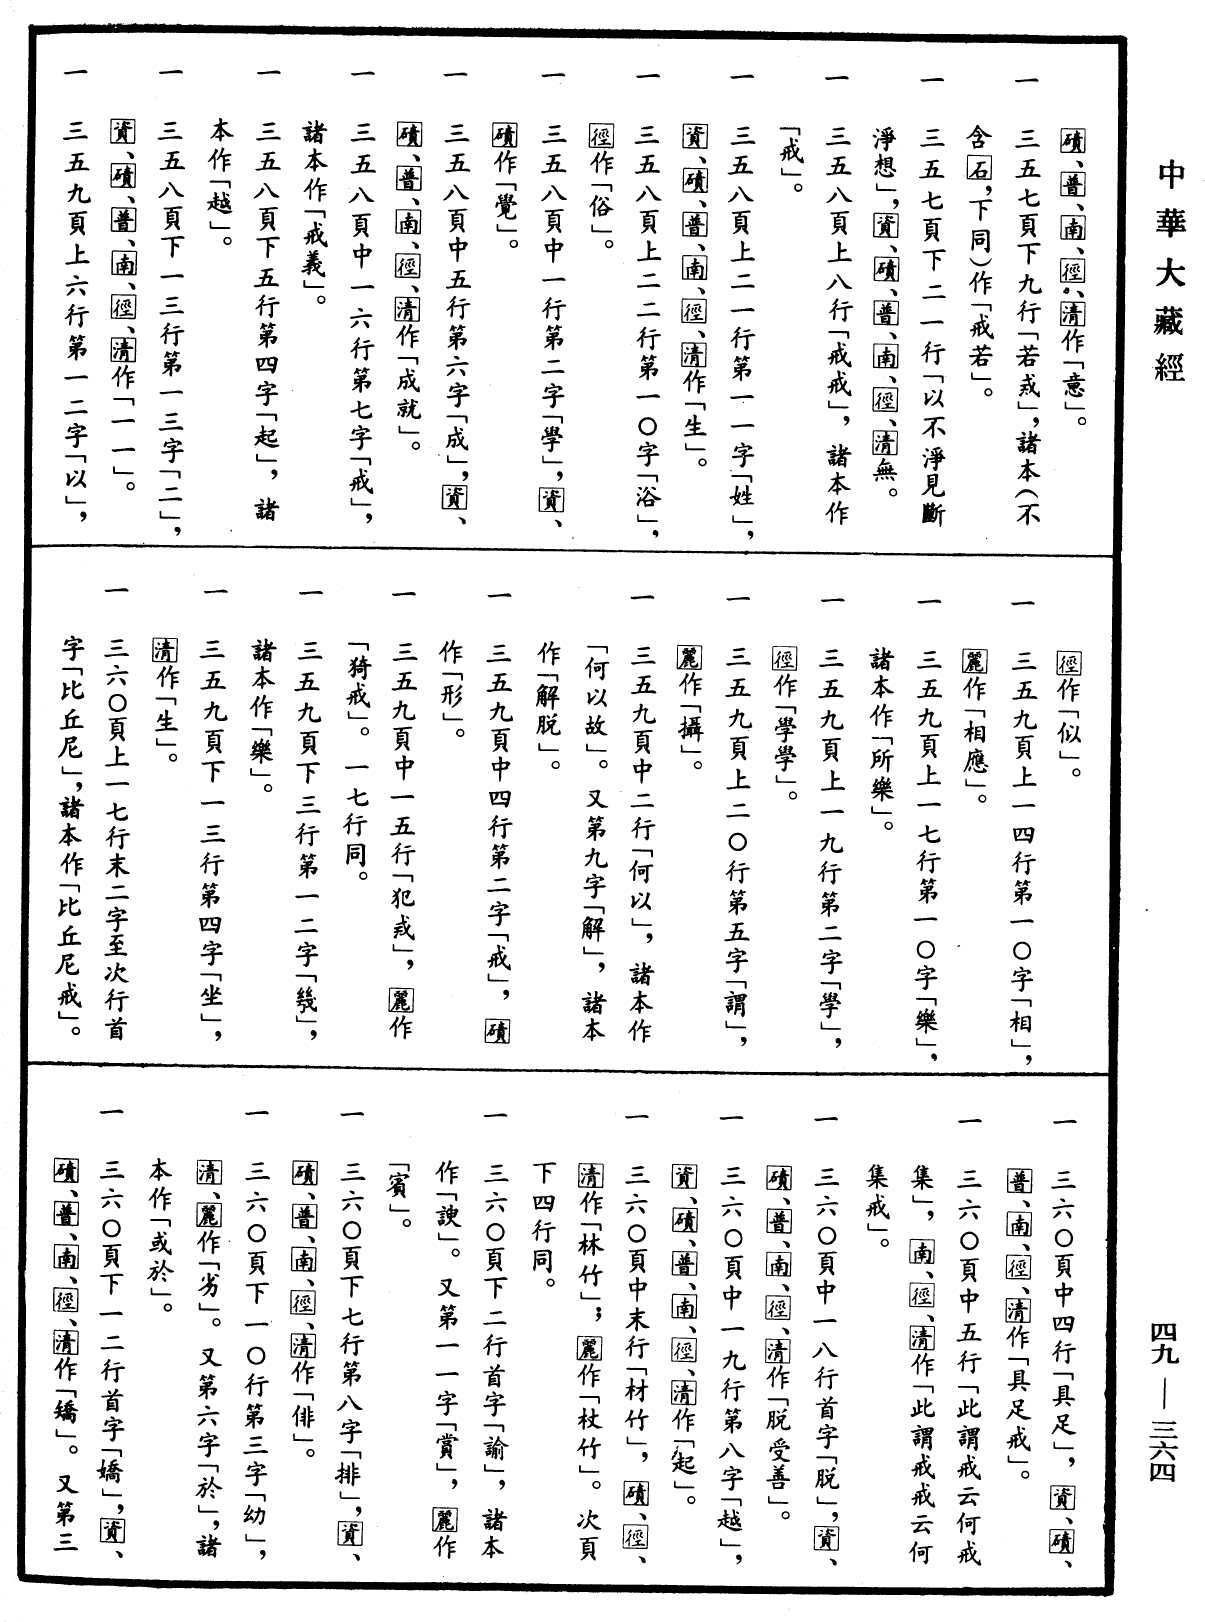 中華大藏經
四九—三六四
磧、普、南、徑、清作「意」。
一 三五七頁下九行「若戒」，諸本（不
含石，下同）作「戒若」。
一 三五七頁下二一行「以不淨見斷
淨想」，資、磧、普、南、徑、清無。
一 三五八頁上八行「戒戒」，諸本作
「戒」。
一 三五八頁上二一行第一一字「姓」，
資、磧、普、南、徑、清作「生」。
一 三五八頁上二二行第一〇字「浴」，
徑作「俗」。
一 三五八頁中一行第二字「學」，資、
磧作「覺」。
一 三五八頁中五行第六字「成」，資、
磧、普、南、徑、清作「成就」。
一 三五八頁中一六行第七字「戒」，
諸本作「戒義」。
一 三五八頁下五行第四字「起」，諸
本作「越」。
一 三五八頁下一三行第一三字「二」，
資、磧、普、南、徑、清作「一一」。
一 三五九頁上六行第一二字「以」，
徑作「似」。
一 三五九頁上一四行第一〇字「相」，
麗作「相應」。
一 三五九頁上一七行第一〇字「樂」，
諸本作「所樂」。
一 三五九頁上一九行第二字「學」，
徑作「學學」。
一 三五九頁上二〇行第五字「謂」，
麗作「攝」。
一 三五九頁中二行「何以」，諸本作
「何以故」。又第九字「解」，諸本
作「解脱」。
一 三五九頁中四行第二字「戒」，磧
作「形」。
一 三五九頁中一五行「犯戒」，麗作
「猗戒」。一七行同。
一 三五九頁下三行第一二字「幾」，
諸本作「樂」。
一 三五九頁下一三行第四字「坐」，
清作「生」。
一 三六〇頁上一七行末二字至次行首
字「比丘尼」，諸本作「比丘尼戒」。
一 三六〇頁中四行「具足」，資、磧、
普、南、徑、清作「具足戒」。
一 三六〇頁中五行「此謂戒云何戒
集」，南、徑、清作「此謂戒戒云何
集戒」。
一 三六〇頁中一八行首字「脱」，資、
磧、普、南、徑、清作「脱受善」。
一 三六〇頁中一九行第八字「越」，
資、磧、普、南、徑、清作「起」。
一 三六〇頁中末行「材竹」，磧、徑、
清作「林竹」；麗作「杖竹」。次頁
下四行同。
一 三六〇頁下二行首字「諭」，諸本
作「諛」。又第一一字「賞」，麗作
「賓」。
一 三六〇頁下七行第八字「排」，資、
磧、普、南、徑、清作「俳」。
一 三六〇頁下一〇行第三字「幼」，
清、麗作「劣」。又第六字「於」，諸
本作「或於」。
一 三六〇頁下一二行首字「嬌」，資、
磧、普、南、徑、清作「矯」。又第三